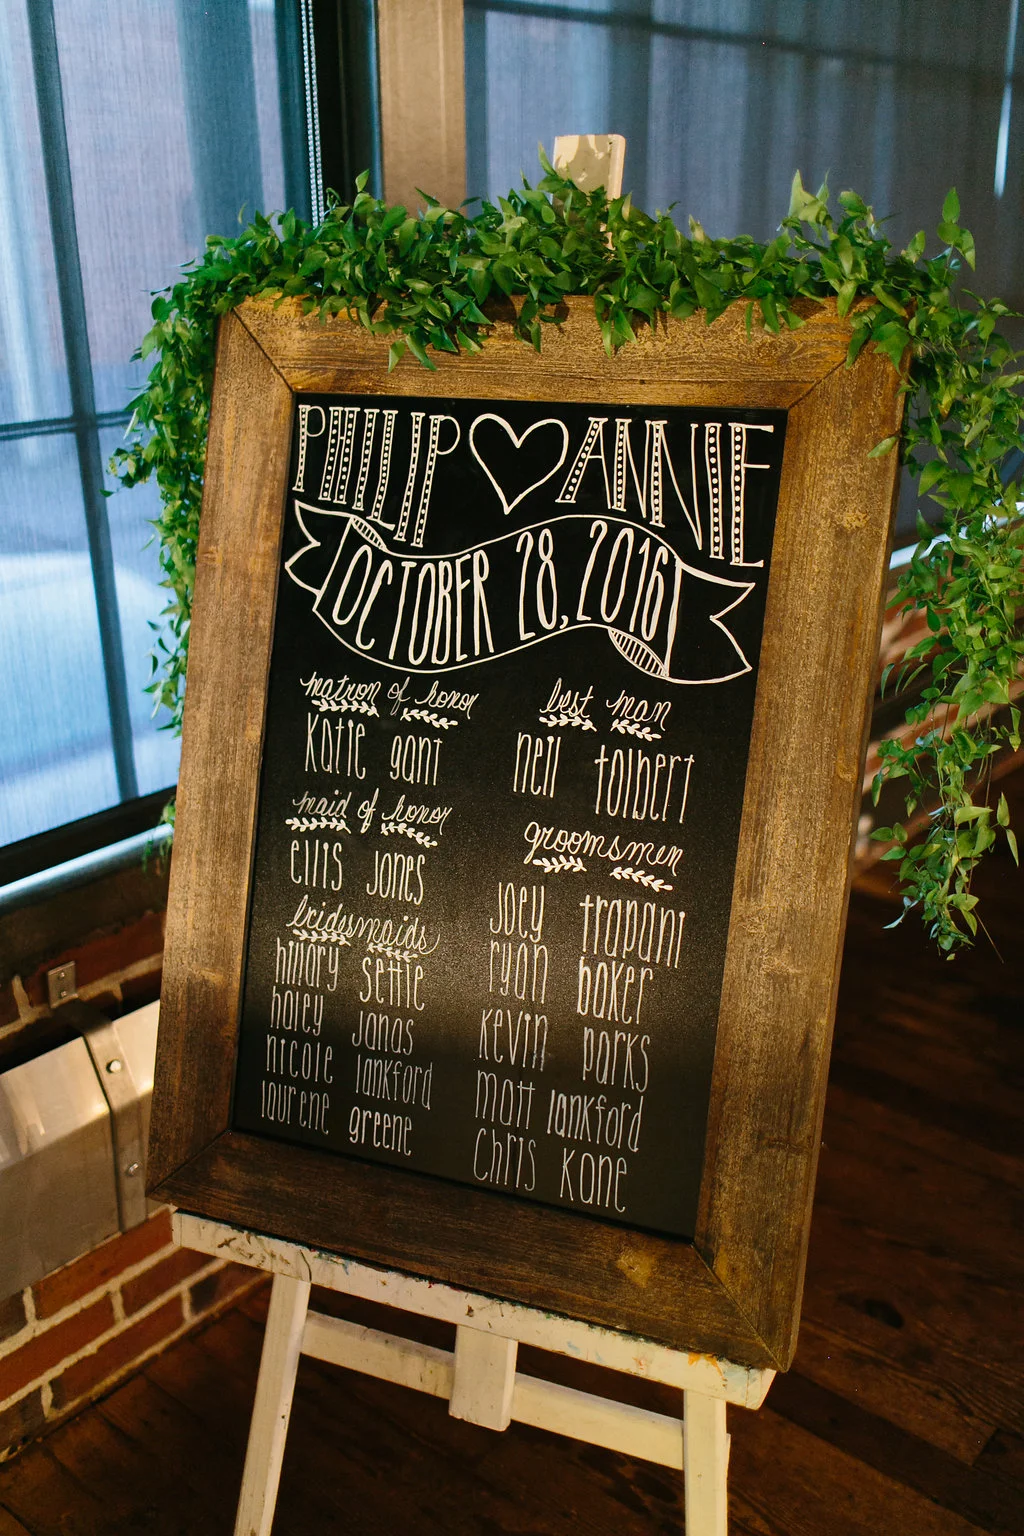 PHILIP ANNIE
OCTOBER 28, 2016
matron of honor
katie gant
maid of honor
ellis jones
bridesmaids
hillary settle
haley janas
nicole lankford
laurene greene
best man
neil tolbert
groomsmen
joey trapani
ryan baker
kevin parks
matt lankford
chris kane